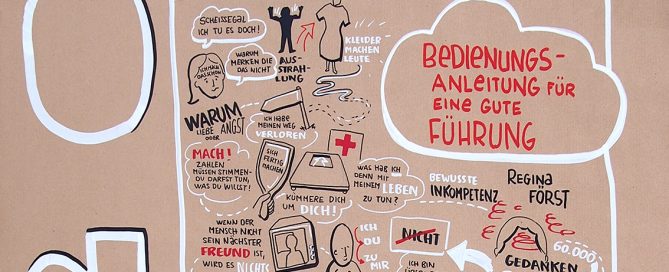 SCHEISSEGAL
ICH TU ES DOCH!
WARUM
MERKEN DIE
DAS NICHT
AUS-
STRAH-
LUNG
KLEIDER
MACHEN
LEUTE
BEDIENUNGS-
ANLEITUNG FÜR
EINE GUTE
FÜHRUNG
ICH MACH
DAS SCHON
WARUM
LIEBE ANGST
ODER
ICH HABE
MEINEN WEG
VERLOREN
MACH!
ZAHLEN
MÜSSEN STIMMEN-
DU DARFST TUN,
WAS DU WILLST!
SICH
FERTIG
MACHEN
WAS HAB ICH
DENN MIT
MEINEM LEBEN
ZU TUN?
KÜMMERE DICH
UM DICH!
BEWUSSTE
INKOMPETENZ
REGINA
FÖRST
WENN DER
MENSCH NICHT
SEIN NÄCHSTER
FREUND IST,
WIRD ES NICHTS
ICH
DU
ZU
MIR
NICHT
60.000
GEDANKEN
ICH BIN